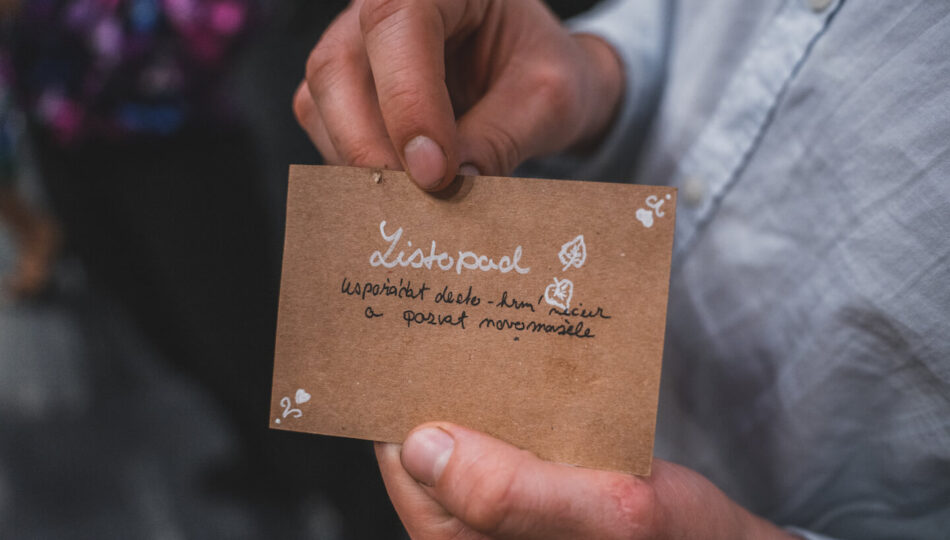 Listopad
uspořádat desko-hrní večer
a pozvat novomanžele